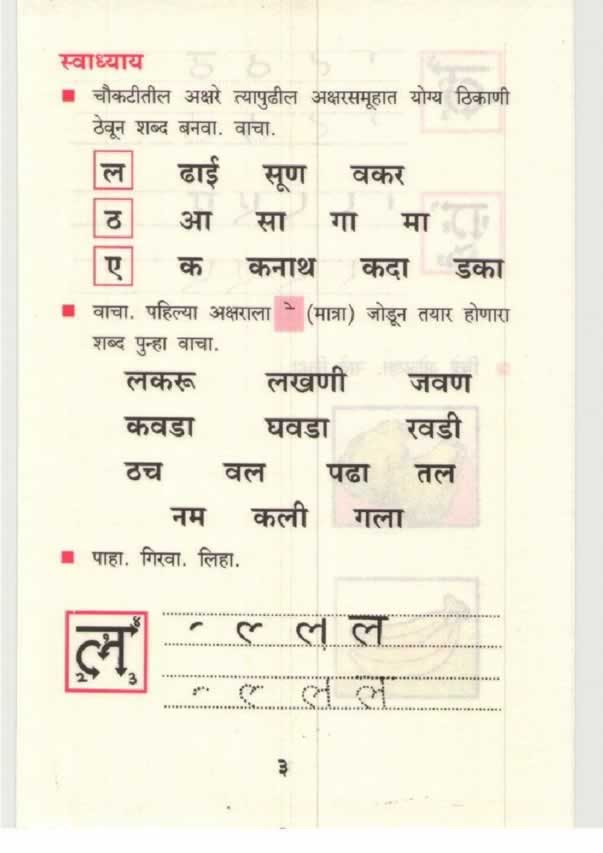 स्वाध्याय
चौकटीतील अक्षरे त्यापुढील अक्षरसमूहात योग्य ठिकाणी
ठेवून शब्द बनवा. वाचा.
ल ढाई सूण वकर
ठ आ सा गा मा
ए क कनाथ कदा डका
वाचा. पहिल्या अक्षराला े (मात्रा) जोडून तयार होणारा
शब्द पुन्हा वाचा.
लकरू लखणी जवण
कवडा घवडा रवडी
ठच वल पढा तल
नम कली गला
पाहा. गिरवा. लिहा.
ल ल ल
ल ल
३